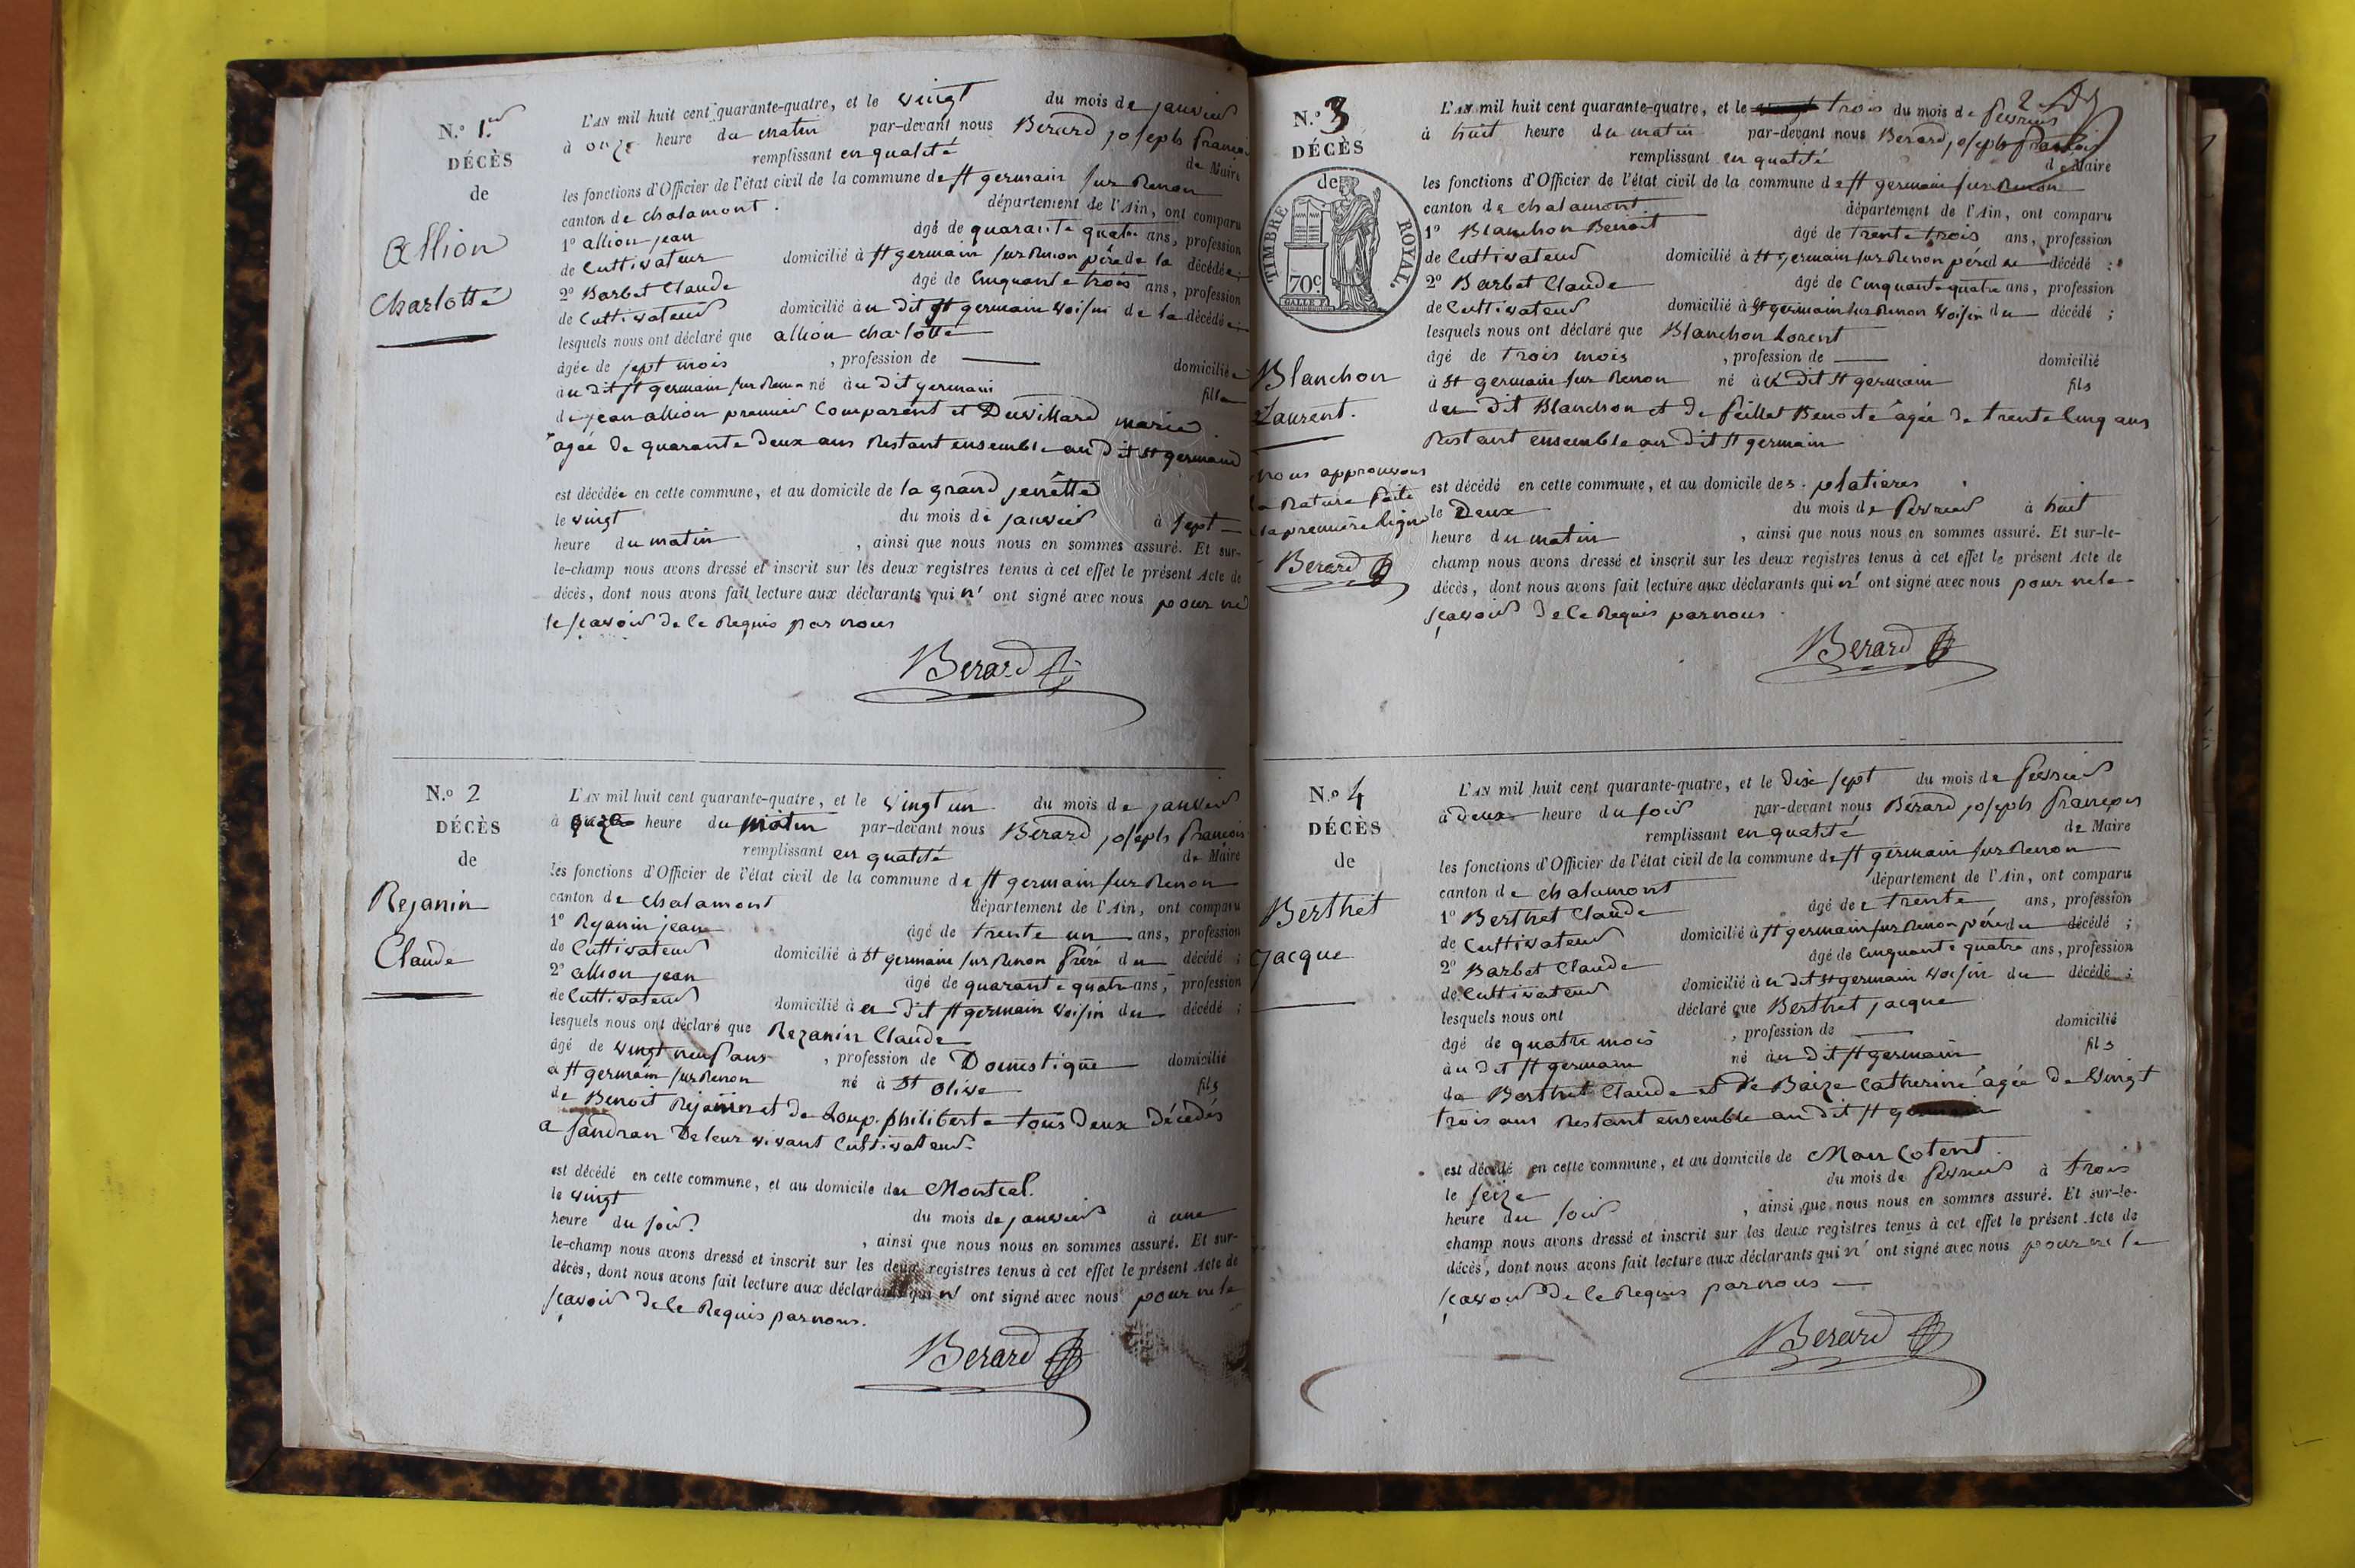 N.º 1.er
DÉCÈS
de
Allion
Charlotte
L'AN mil huit cent quarante-quatre, et le vingt du mois de janvier
à onze heure du matin par-devant nous Berard joseph françois
remplissant en qualité de Maire
les fonctions d'Officier de l'état civil de la commune de st germain sur Renon
canton de chalamont. département de l'Ain, ont comparu
1º allion jean âgé de quarante quatre ans, profession
de Cultivateur domicilié à st germain sur Renon père de la décédée;
2º Barbet Claude âgé de Cinquante trois ans, profession
de Cultivateur domicilié àu dit st germain voisin de la décédée;
lesquels nous ont déclaré que allion charlotte
âgée de sept mois, profession de domiciliée
àu dit st germain sur Renon né àu dit germain fille
de jean allion premier Comparent et Duvillard marie
âgée de quarante deux ans Restant ensemble au dit st germain
est décédée en cette commune, et au domicile de la grand jenette
le vingt du mois de janvier à sept
heure du matin, ainsi que nous nous en sommes assuré. Et sur-
le-champ nous avons dressé et inscrit sur les deux registres tenus à cet effet le présent Acte de
décès, dont nous avons fait lecture aux déclarants qui n' ont signé avec nous pour ne
le scavoir de le Requis par nous
Berard
N.º 2
DÉCÈS
de
Rejanin
Claude
L'AN mil huit cent quarante-quatre, et le vingt un du mois de janvier
à onze heure du matin par-devant nous Berard joseph françois
remplissant en qualité de Maire
les fonctions d'Officier de l'état civil de la commune de st germain sur Renon
canton de chalamont département de l'Ain, ont comparu
1º Rejanin jean âgé de trente un ans, profession
de Cultivateur domicilié à st germain sur Renon frère du décédé;
2º allion jean âgé de quarante quatre ans, profession
de Cultivateur domicilié à u dit st germain voisin du décédé;
lesquels nous ont déclaré que Rejanin Claude
âgé de vingt neuf ans, profession de Domestique domicilié
à st germain sur Renon né à st olive fils
de Benoit Rejanin et de Loup philiberte tous deux Décédés
a sandran De leur vivant Cultivateur
est décédé en cette commune, et au domicile du Montcel.
le vingt du mois de janvier à une
heure du soir, ainsi que nous nous en sommes assuré. Et sur-
le-champ nous avons dressé et inscrit sur les deux registres tenus à cet effet le présent Acte de
décès, dont nous avons fait lecture aux déclarants qui n' ont signé avec nous pour ne le
scavoir de le Requis par nous.
Berard
N.º 3
DÉCÈS
de
TIMBRE ROYAL.
70c.
Blanchon
Laurent.
nous approuvons
la Rature faite
a la première ligne
Berard
L'AN mil huit cent quarante-quatre, et le trois du mois de fevrier
à huit heure du matin par-devant nous Berard joseph françois
remplissant en qualité de Maire
les fonctions d'Officier de l'état civil de la commune de st germain sur Renon
canton de chalamont. département de l'Ain, ont comparu
1º Blanchon Benoit âgé de trente trois ans, profession
de Cultivateur domicilié à st germain sur Renon père du décédé;
2º Barbet Claude âgé de Cinquante quatre ans, profession
de Cultivateur domicilié à st germain sur Renon voisin du décédé;
lesquels nous ont déclaré que Blanchon Lorent
âgé de trois mois, profession de domicilié
à st germain sur Renon né àu dit st germain fils
du dit Blanchon et de feillet Benoite âgée de trente Cinq ans
Restant ensemble au dit st germain
est décédé en cette commune, et au domicile des platieres
le Deux du mois de fevrier à huit
heure du matin, ainsi que nous nous en sommes assuré. Et sur-le-
champ nous avons dressé et inscrit sur les deux registres tenus à cet effet le présent Acte de
décès, dont nous avons fait lecture aux déclarants qui n' ont signé avec nous pour ne le
scavoir de le Requis par nous.
Berard
N.º 4
DÉCÈS
de
Berthet
Jacque
L'AN mil huit cent quarante-quatre, et le dix sept du mois de fevrier
à deux heure du soir par-devant nous Bérard joseph françois
remplissant en qualité de Maire
les fonctions d'Officier de l'état civil de la commune de st germain sur Renon
canton de chalamont département de l'Ain, ont comparu
1º Berthet Claude âgé de trente ans, profession
de Cultivateur domicilié à st germain sur Renon père du décédé;
2º Barbet Claude âgé de Cinquante quatre ans, profession
de Cultivateur domicilié à u dit st germain voisin du décédé;
lesquels nous ont déclaré que Berthet jacque
âgé de quatre mois, profession de domicilié
àu dit st germain né àu dit st germain fils
de Berthet Claude et de Baize Catherine âgée de vingt
trois ans Restant ensemble au dit st germain
est décédé en cette commune, et au domicile de
le seize du mois de fevrier à trois
heure du soir, ainsi que nous nous en sommes assuré. Et sur-le-
champ nous avons dressé et inscrit sur les deux registres tenus à cet effet le présent Acte de
décès, dont nous avons fait lecture aux déclarants qui n' ont signé avec nous pour ne le
scavoir de le Requis par nous
Berard